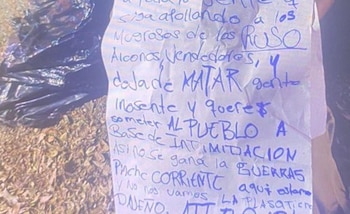 sigapollando a los
Mugrosos de los RUSO
Alcones, Vendedores, y
deja de MATAR gente
inosente y queres
someter AL PUEBLO A
BASE DE INTIMIDACION
Asi no se gana la GUERRAS
Pinche CORRIENTE aqui estamo
y no nos vamos LA PLASA tiene
DUEÑO. ATT